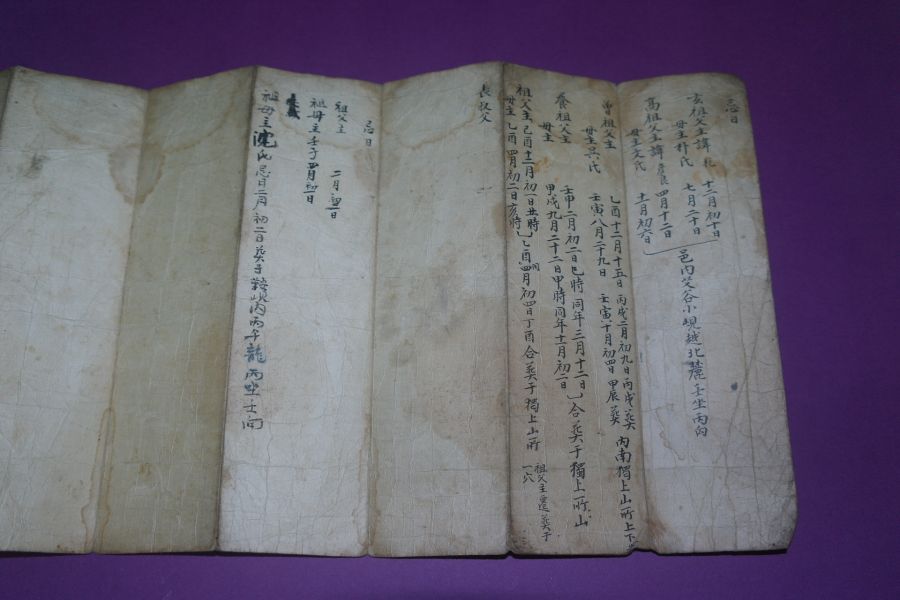 忌日
玄祖父主諱 十二月初十日
母主朴氏 七月二十日
高祖父主諱 四月十二日
母主文氏 十一月初六日
邑内 谷小峴越北麓壬坐丙向
曾祖父主 乙酉十二月十五日 丙戌二月初九日丙戌葬 内南獨上山所上下
母主吳氏 壬寅八月二十九日 壬寅十月初四日甲辰葬
養祖父主 壬申二月初二日巳時 同年三月十二日
母主 甲戌九月二十二日甲時 同年十一月初二日
合葬于獨上所山
祖父主 己酉十二月初一日丑時
母主 乙酉四月初二日亥時
乙酉四月初四日丁酉合葬于獨上山所
祖父主墨葬于
一穴
喪叔父
忌日
祖父主 二月初一日
祖母主 壬子四月初一日
祖母主沈氏忌日二月初二日葬于 峴内丙午龍丙坐壬向